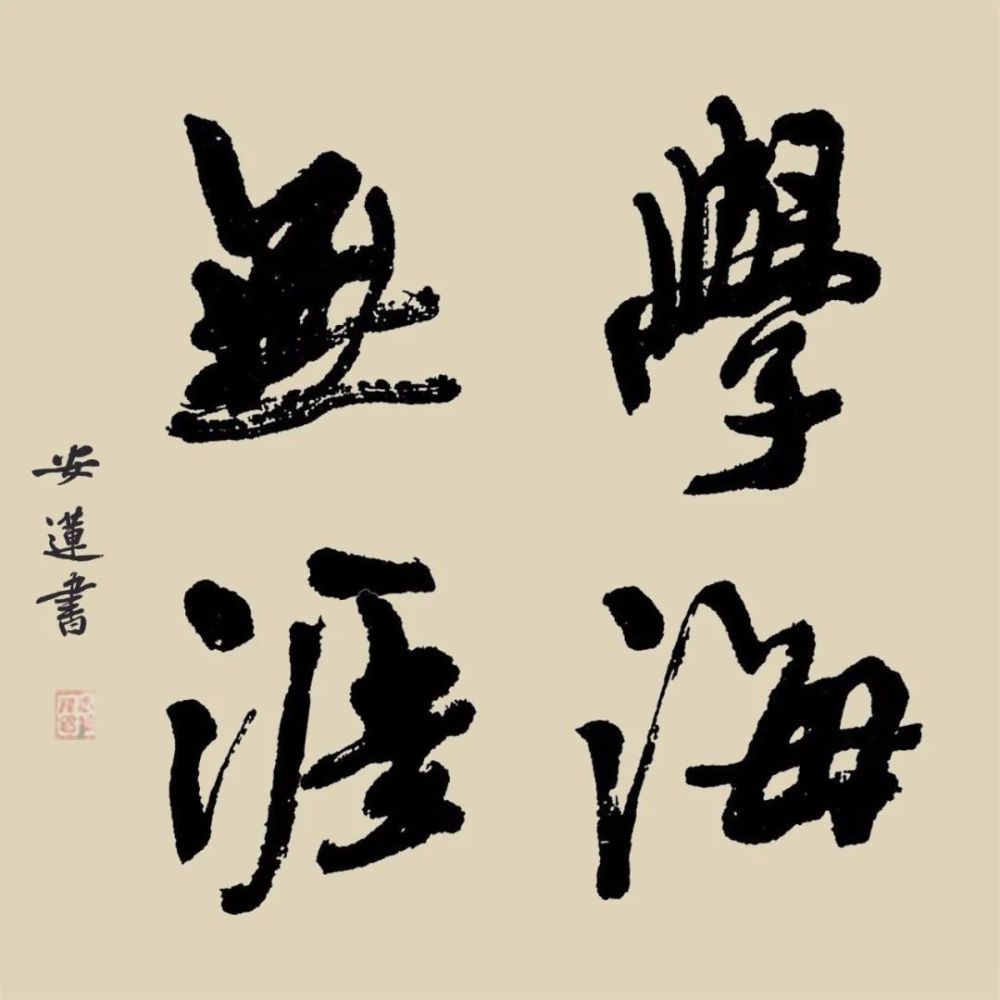 學海
無涯
安蓮書